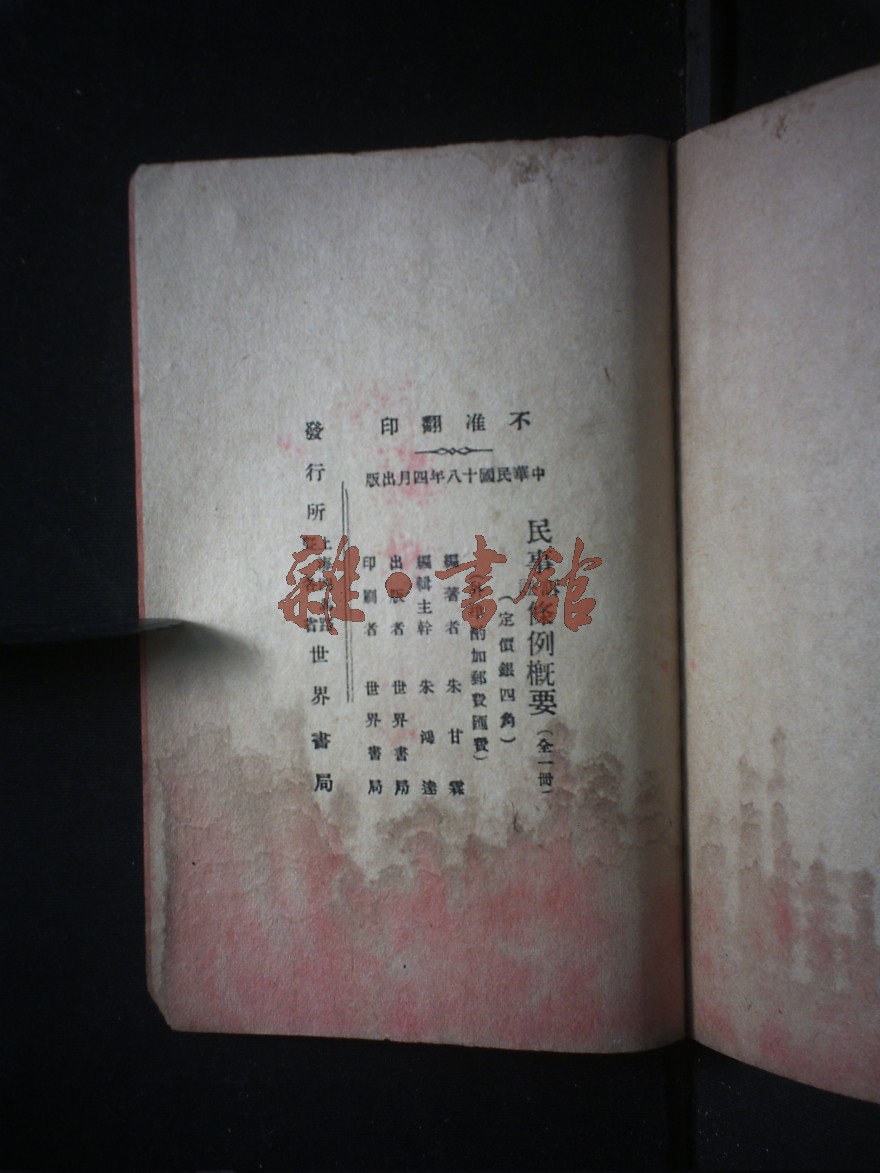 不准翻印
中華民國十八年四月出版
民事條例概要（全一冊）
（定價銀四角）
酌加郵費匯費）
編著者 朱甘霖
編輯主幹 朱鴻達
出版者 世界書局
印刷者 世界書局
發行所 上海 路 省 世界書局
雜·書館